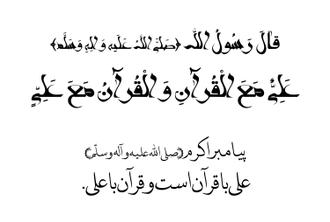 قَالَ رَسُولُ اللّٰه ﴿صَلَّی اللّٰهُ عَلَیهِ وَ الِهِ وَ سَلَّم﴾
عَلِیٌّ مَعَ الْقُرآنِ وَ الْقُرآنُ مَعَ عَلِیٍّ
پیامبر اکرم (صلی الله علیه و آله و سلّم)
علی با قرآن است و قرآن با علی.